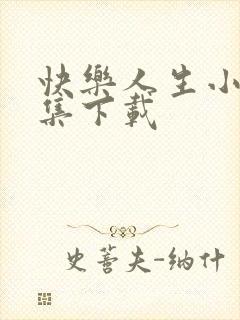 快樂人生小
集下載
史蒈夫-纳什